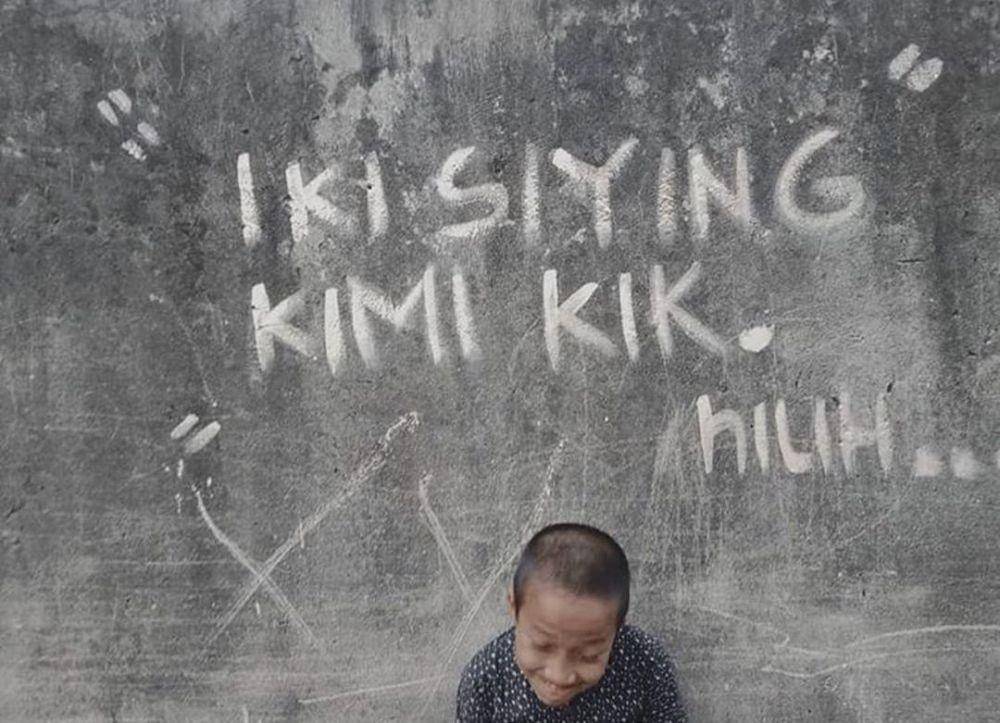 IKI SIYING
KIMI KIK.
nIUH...